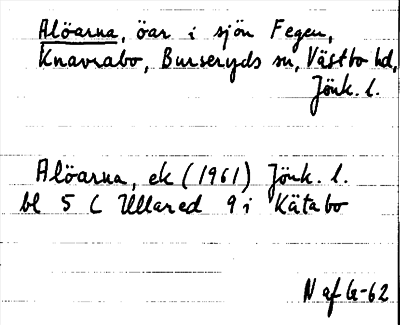 Alöarna, öar i sjön Fegen,
Knavrabo, Burseryds sn, Västbo hd,
Jönk. l.
Alöarna, ek (1961) Jönk. l.
bl 5 C Ullared 9 i Kätabo
N af G-62